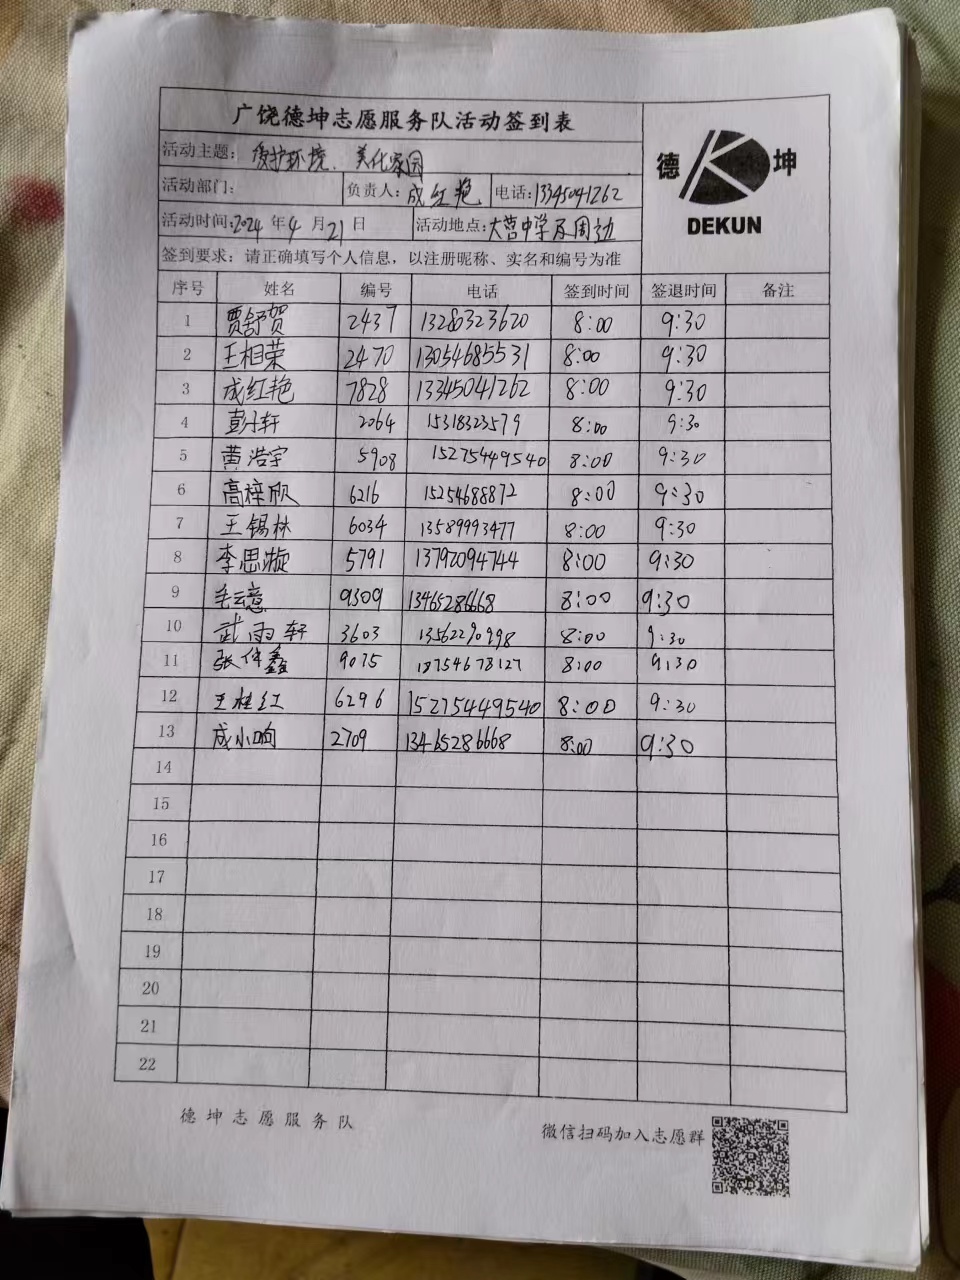 广饶德坤志愿服务队活动签到表
活动主题：爱护环境、美化家园
德 坤
DEKUN
活动部门： 负责人：成红艳 电话：13345041262
活动时间：2024 年 4 月 21 日 活动地点：大营中学及周边
签到要求：请正确填写个人信息，以注册昵称、实名和编号为准
序号 姓名 编号 电话 签到时间 签退时间 备注
1 贾舒贺 2437 13280323620 8:00 9:30
2 王相荣 2470 13054685531 8:00 9:30
3 成红艳 7828 13345041262 8:00 9:30
4 彭子轩 2064 15318323579 8:00 9:30
5 黄浩宇 5908 15275449540 8:00 9:30
6 高梓欣 6216 15254688872 8:00 9:30
7 王锡林 6034 13589993477 8:00 9:30
8 李思漩 5791 13792094744 8:00 9:30
9 毛云意 9309 13465286668 8:00 9:30
10 武雨轩 3603 13562290998 8:00 9:30
11 张佳鑫 9075 18754678127 8:00 9:30
12 王桂红 6296 15275449540 8:00 9:30
13 成小响 2709 13465286668 8:00 9:30
14
15
16
17
18
19
20
21
22
德坤志愿服务队
微信扫码加入志愿群